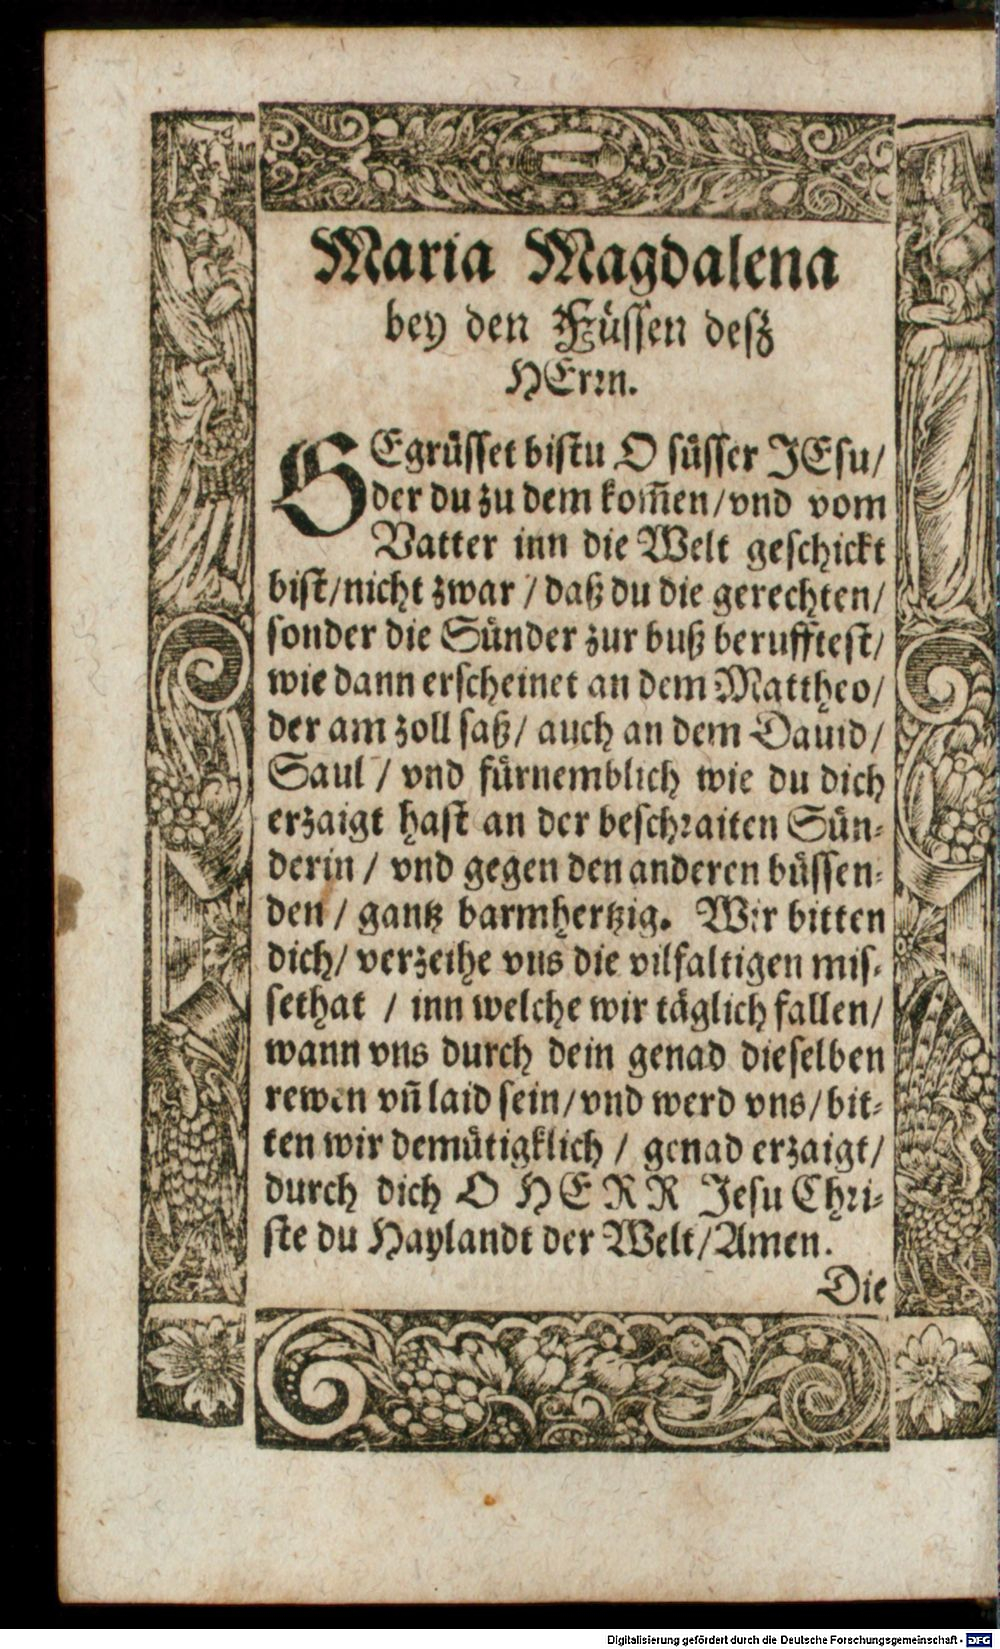 Maria Magdalena
bey den Füssen deß
HErrn.
GEgrüsset bistu O süsser JEsu/
der du zu dem kom̃en/vnd vom
Vatter inn die Welt geschickt
bist/nicht zwar / daß du die gerechten/
sonder die Sünder zur buß berufftest/
wie dann erscheinet an dem Mattheo/
der am zoll saß/ auch an dem Dauid/
Saul / vnd fürnemblich wie du dich
erzaigt hast an der beschraiten Sün-
derin / vnd gegen den anderen büssen-
den / gantz barmhertzig. Wir bitten
dich/ verzeihe vns die vilfaltigen mis-
sethat / inn welche wir täglich fallen/
wann vns durch dein genad dieselben
rewen vn̄ laid sein/vnd werd vns/bit-
ten wir demütigklich / genad erzaigt/
durch dich O HERR Jesu Chri-
ste du Haylandt der Welt/Amen.
Die
Digitalisierung gefördert durch die Deutsche Forschungsgemeinschaft - DFG